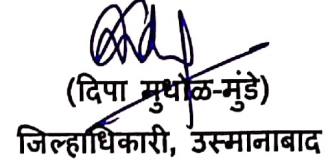 (दिपा मुधोळ-मुंडे)
जिल्हाधिकारी, उस्मानाबाद